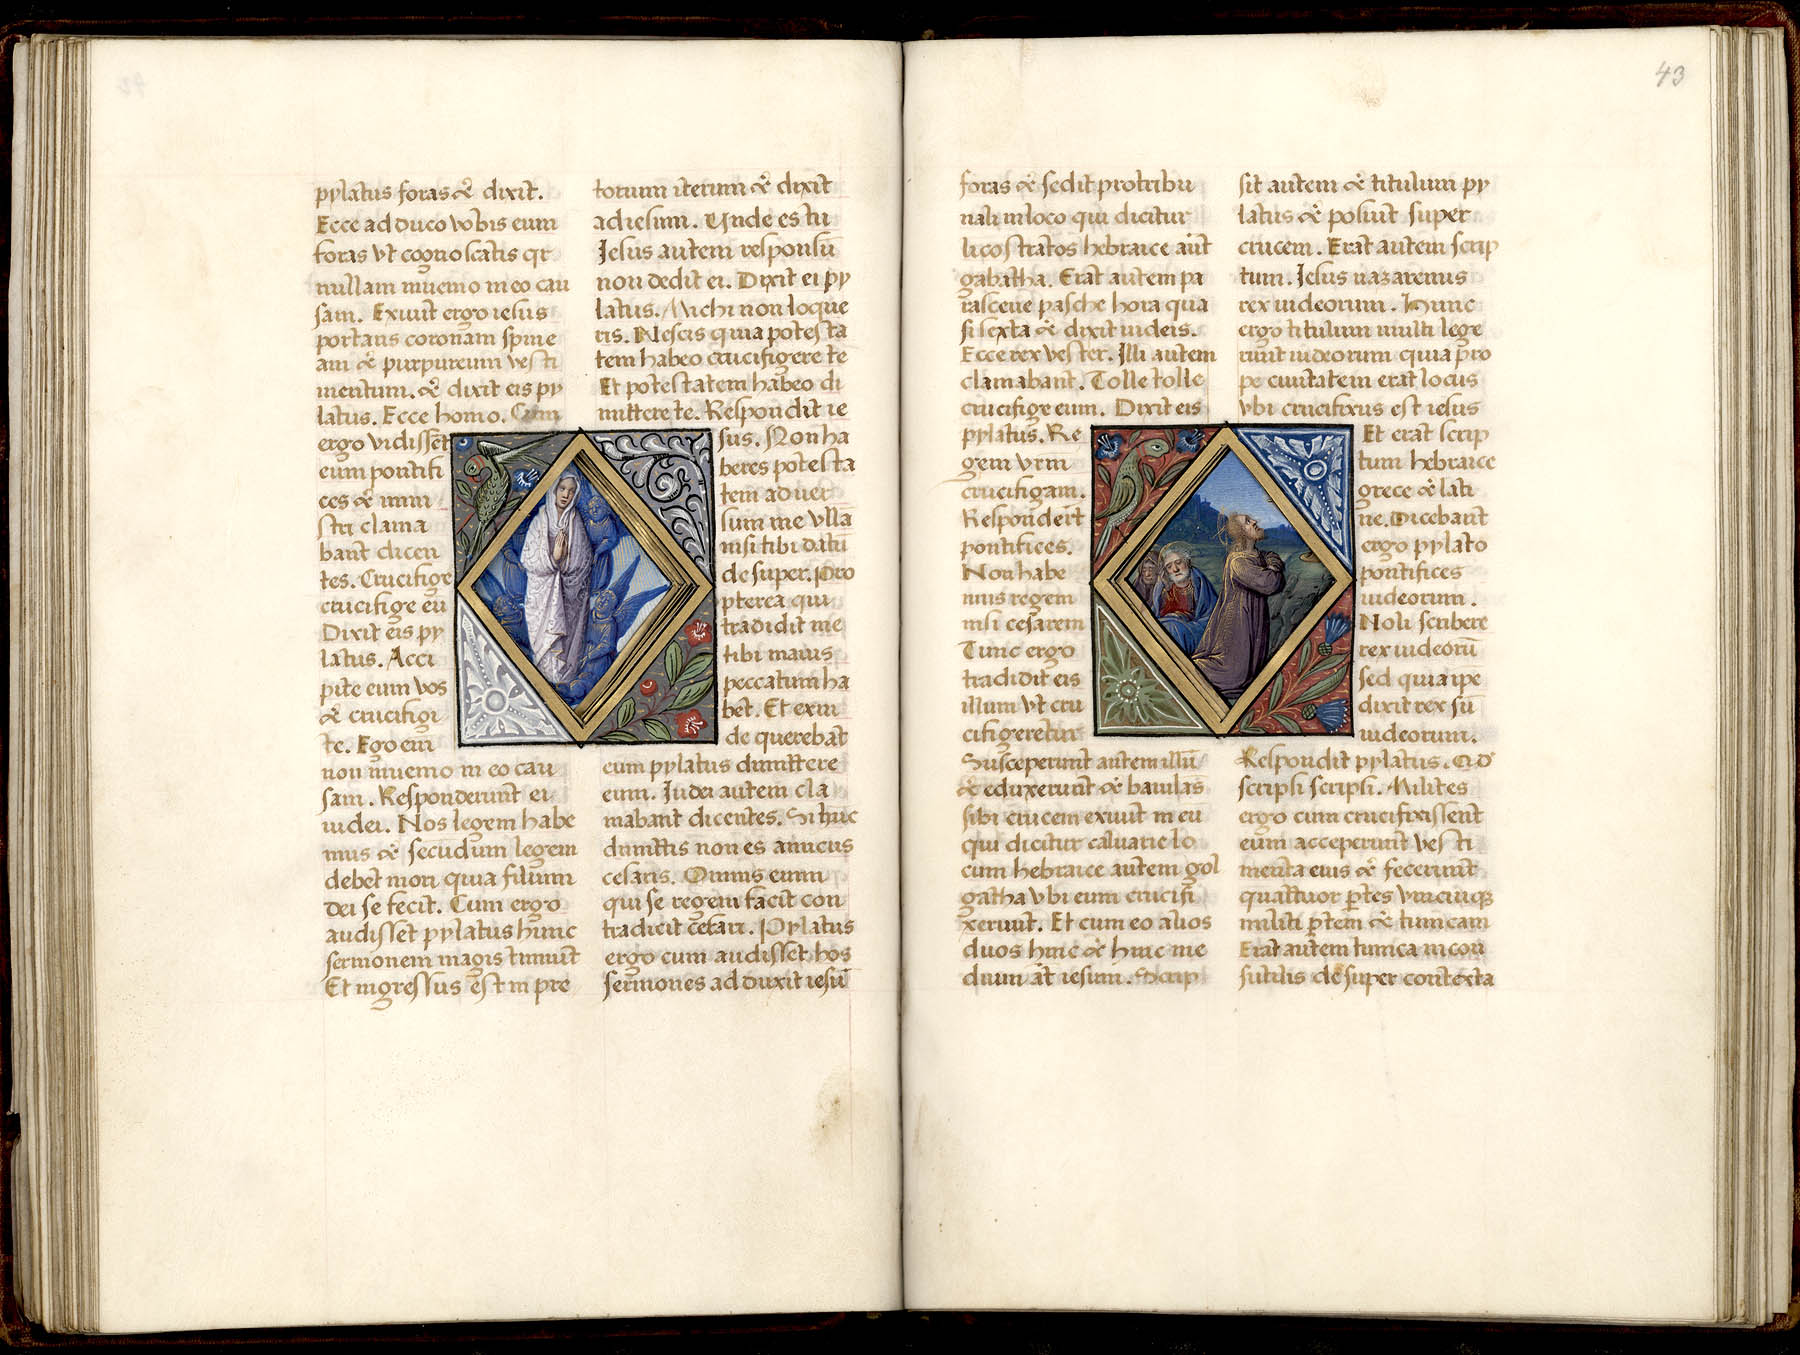 pylatus foras & dixit.
Ecce adduco vobis eum
foras vt cognoscatis qr
nullam inuenio in eo cau
sam. Exiuit ergo iesus
portans coronam spine
am & purpureum vesti
mentum. & dixit eis py
latus. Ecce homo. Cum
ergo vidissēt
eum pontifi
ces & mini
stri clama
bant dicen
tes. Crucifige
crucifige eū
Dixit eis py
latus. Acci
pite eum vos
& crucifigi
te. Ego eni
non inuenio in eo cau
sam. Responderunt ei
iudei. Nos legem habe
mus & secūdum legem
debet mori quia filium
dei se fecit. Cum ergo
audisset pylatus hunc
sermonem magis timuit
Et ingressus est in pre
torium iterum & dixit
ad iesum. Unde es tu
Jesus autem responsū
non dedit ei. Dixit ei py
latus. Michi non loque
ris. Nescis quia potesta
tem habeo crucifigere te
Et potestatem habeo di
mittere te. Respondit ie
sus. Non ha
beres potesta
tem aduer
sum me vllā
nisi tibi datū
desuper. Pro
pterea qui
tradidit me
tibi maius
peccatum ha
bet. Et exin
de querebat
eum pylatus dimittere
eum. Judei autem cla
mabant dicentes. Si hūc
dimittis non es amicus
cesaris. Omnis enim
qui se regem facit con
tradicit cesari. Pylatus
ergo cum audisset hos
sermones adduxit iesū
43
foras & sedit pro tribu
nali in loco qui dicitur
licostratos hebraice aūt
gabatha. Erat autem pa
rasceue pasche hora qua
si sexta & dixit iudeis.
Ecce rex vester. Illi autem
clamabant. Tolle tolle
crucifige eum. Dixit eis
pylatus. Re
gem vrm
crucifigam.
Responderūt
pontifices.
Non habe
mus regem
nisi cesarem
Tunc ergo
tradidit eis
illum vt cru
cifigeretur
Susceperunt autem illū
& eduxerunt & baiulās
sibi crucem exiuit in eū
qui dicitur caluarie lo
cum hebraice autem gol
gatha vbi eum crucifi
xerunt. Et cum eo alios
duos hinc & hinc me
dium āt iesum. Scrip
sit autem & titulum py
latus & posuit super
crucem. Erat autem scrip
tum. Jesus nazarenus
rex iudeorum. Hunc
ergo titulum multi lege
runt iudeorum quia pro
pe ciuitatem erat locus
vbi crucifixus est iesus
Et erat scrip
tum hebraice
grece & lati
ne. Dicebant
ergo pylato
pontifices
iudeorum.
Noli scribere
rex iudeorū
sed quia ipe
dixit rex sū
iudeorum.
Respondit pylatus. Qd
scripsi scripsi. Milites
ergo cum crucifixissent
eum acceperunt vesti
menta eius & fecerunt
quattuor p̄tes vnicuiq̄
militi p̄tem & tunicam
Erat autem tunica incon
sutilis desuper contexta